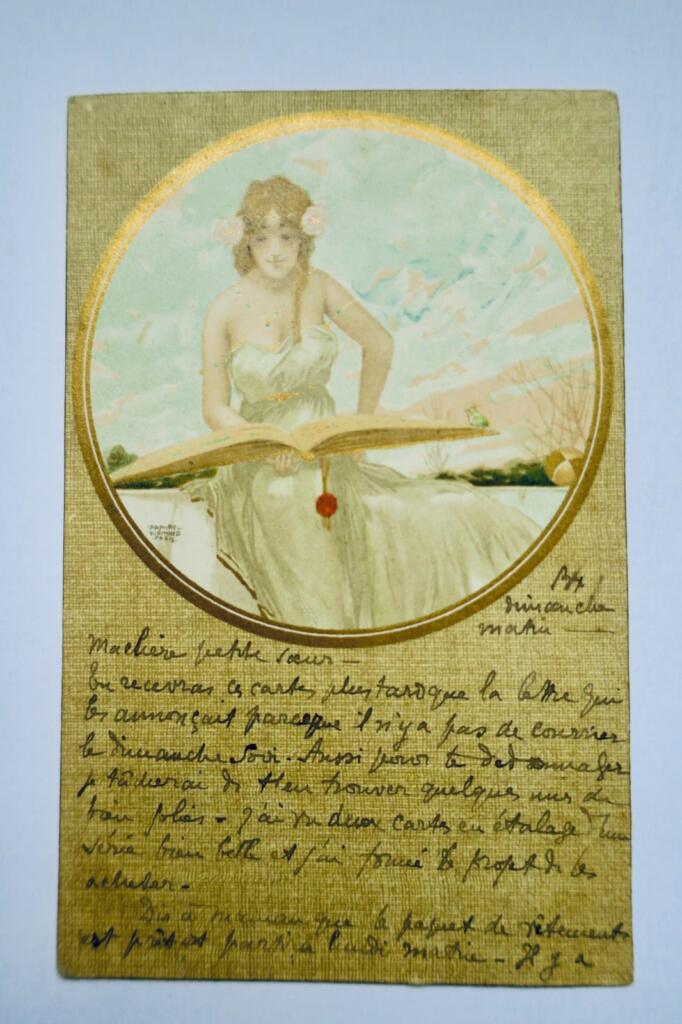 RAPHAEL
KIRCHNER
PARIS
Bx
dimanche
matin —
Ma chère petite sœur —
tu recevras ces cartes plus tard que la lettre qui
les annonçait parce que il n'y a pas de courrier
le dimanche soir. Aussi pour te dédommager
je tâcherai de t'en trouver quelques unes de
bien jolies — j'ai vu deux cartes en étalage d'une
série bien belle et j'ai formé le projet de les
acheter —
Dis à maman que le paquet de vêtements
est prêt et partira lundi matin — Il y a